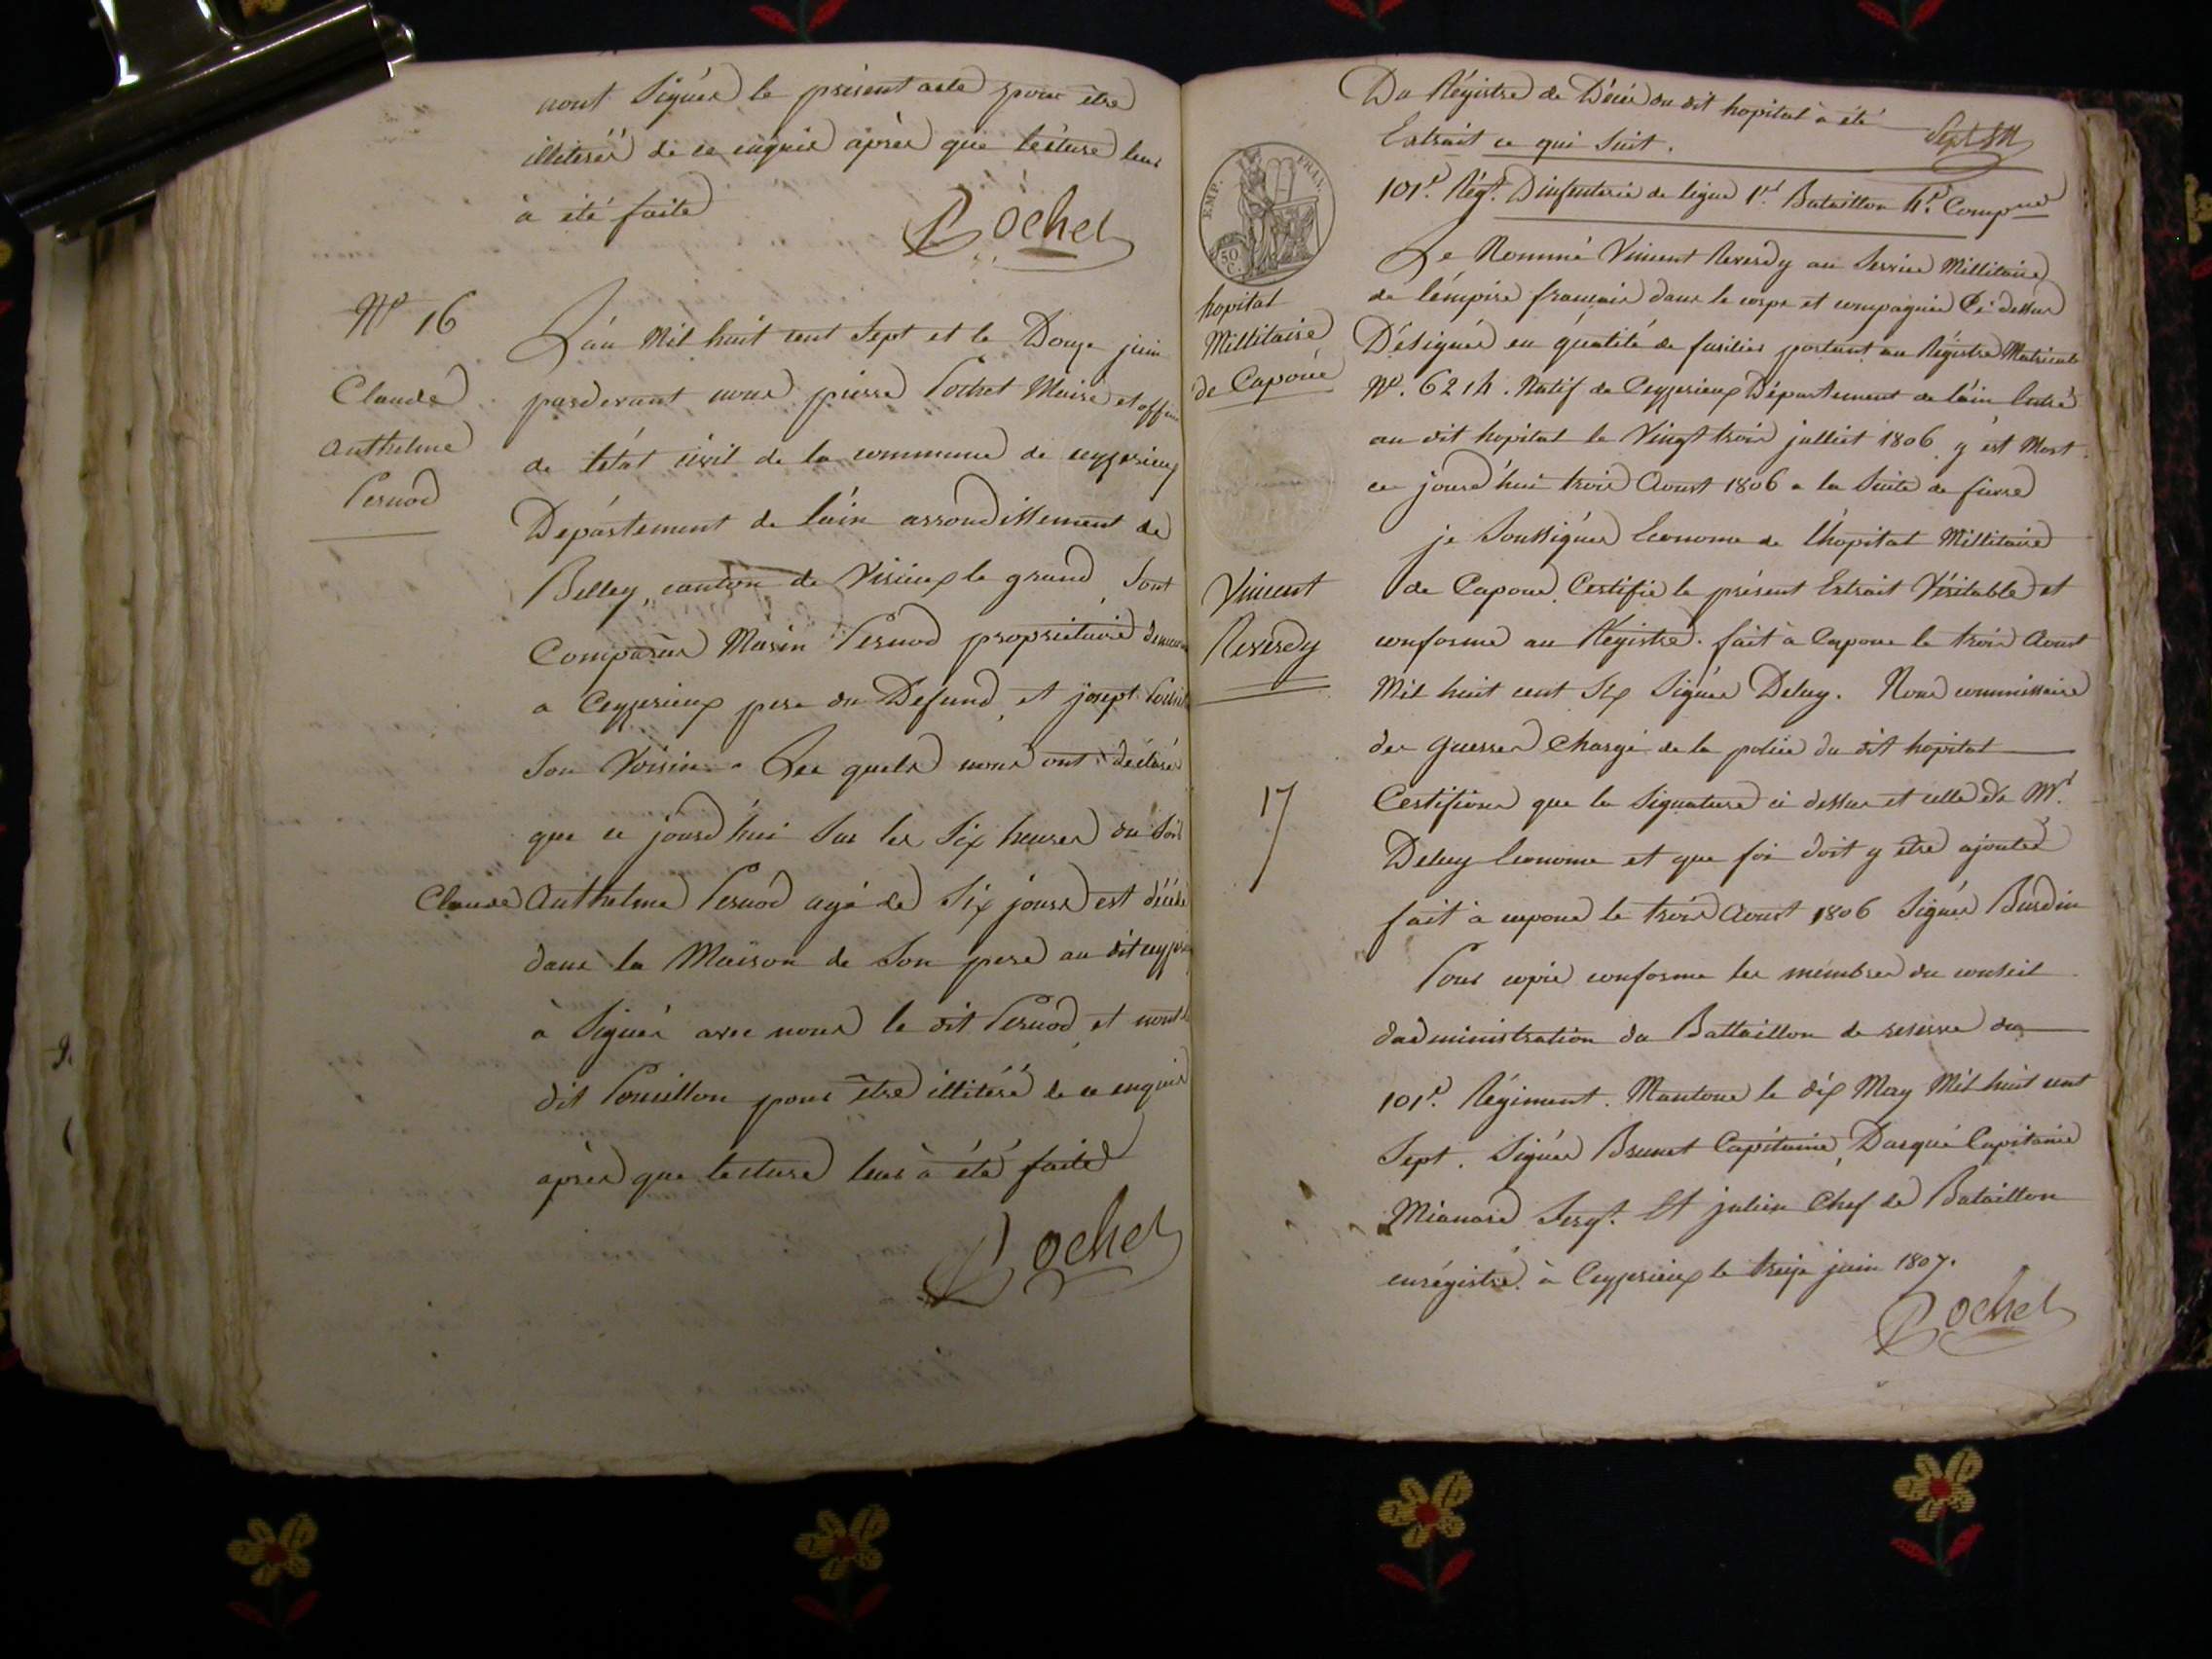 nont Signés le présent acte pour être
illiterés de ce enquis après que lécture leur
à été faite
Pochet
N° 16
Claude
Anthelme
Pernod
L'án Mil huit cent Sept et le Douze juin
pardevant nous pierre Pochet Maire et officier
de létát civil de la commune de ceyzerieux
Département de láin arrondissement de
Belley, canton de Virieux le grand, Sont
Comparus Marin Pernod propriétaire
a Ceyzerieux pere du Défund, et josept
Son Voisin. Les quels nous ont déclaré
que ce jourd'hui Sur les Six heures du Soir
Claude Anthelme Pernod agé de Six jours est décédé
dans la Maison de Son pere au dit
à Signér avec nous le dit Pernod, et non le
dit Pouillon pour être illitéré de ce enquis
après que lecture leur à été faite
Pochet
EMP. FRAN.
50 C.
Du Régistre de Décés du dit hopital à été
Extrait ce qui Suit.
101e. Régt. D'infanterie de ligne 1er. Bataillon 4e. Compnie
hopital
Millitaire
de Capoue
Le Nommé Vincent Reverdy au Service Millitaire
de lémpire francais dans le corps et compagnie Ci dessus
Désignés en quálité de fusilier portant au Régistre Matricule
N°. 6214. Natif de Ceyzerieux Département de láin Entré
au dit hopital le Vingt trois julliet 1806. y est Mort
ce jourd'hui trois Aoust 1806 a la Suite de fievre
je Soussignés Econome de l'hopital Millitaire
Vincent
Reverdy
de Capoue, Certifie le présent Extrait Véritable et
conforme au Régistre. fait à Capoue le trois Aoust
Mil huit cent Six Signés Deluy. Nous commissaire
des guerres Chargé de la police du dit hopital
17
Certifions que la Signature ci dessus et celle de Mr.
Deluy Econome et que foi doit y être ajoutée
fait à capoue le trois Aoust 1806 Signés Burdin
Pour copie conforme les membres du conseil
d'administration du Battaillon de reserve du
101e. Régiment. Mantoue le dix May Mil huit cent
Sept. Signés Brunet Capitaine, Darqué Capitaine
Mianard Sergt. Et julien Chef de Bataillon
enrégistré à Ceyzerieux le treize juin 1807.
Pochet